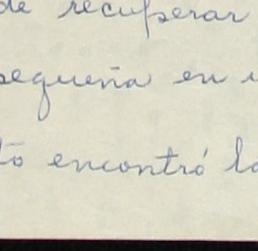 de recuperar
pequeña en
to encontró la